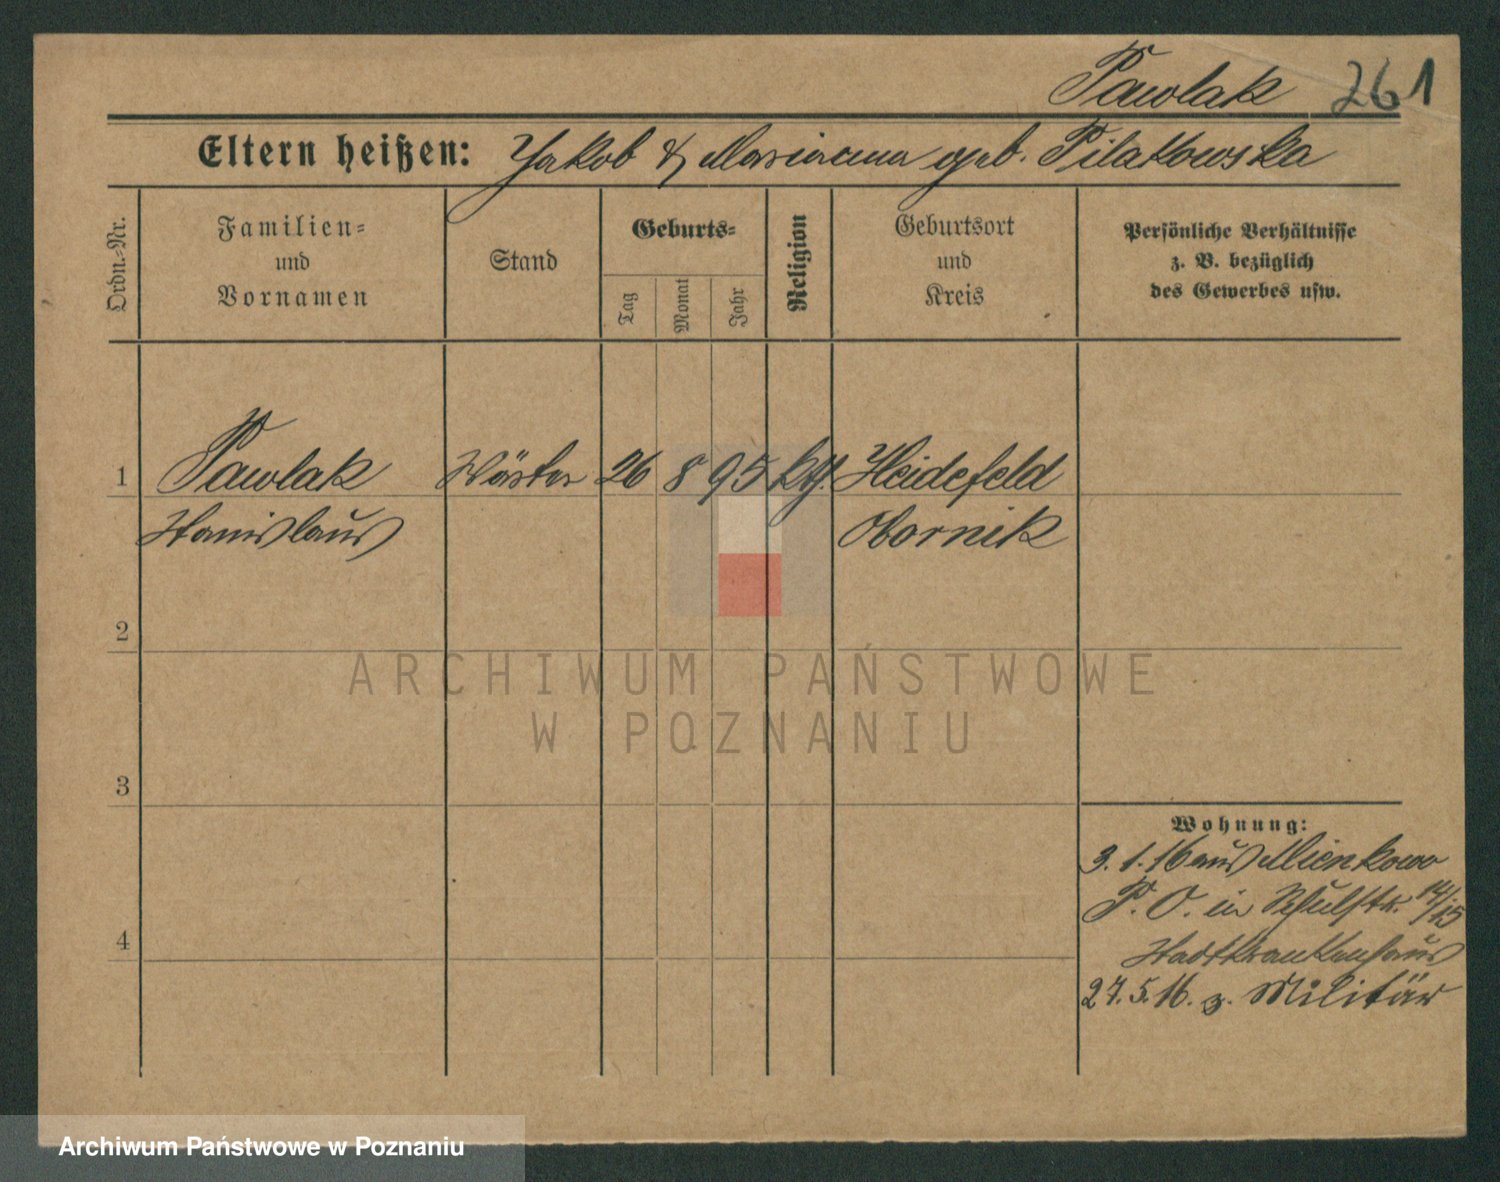 Pawlak 261
Eltern heißen: Jakob & Marianna geb. Pilatowska
Ordn.-Nr.
Familien-
und
Vornamen
Stand
Geburts-
Tag
Monat
Jahr
Religion
Geburtsort
und
Kreis
Persönliche Verhältnisse
z. B. bezüglich
des Gewerbes usw.
1 Pawlak Wärter 26 8 95 kth. Heidefeld
Stanislaus Obornik
2
3
4
Wohnung:
3.1.16 aus Mienkowo
P. O. in Schulstr. 14/15
Stadtkrankenhaus
27.5.16. z. Militär
ARCHIWUM PAŃSTWOWE
W POZNANIU
Archiwum Państwowe w Poznaniu